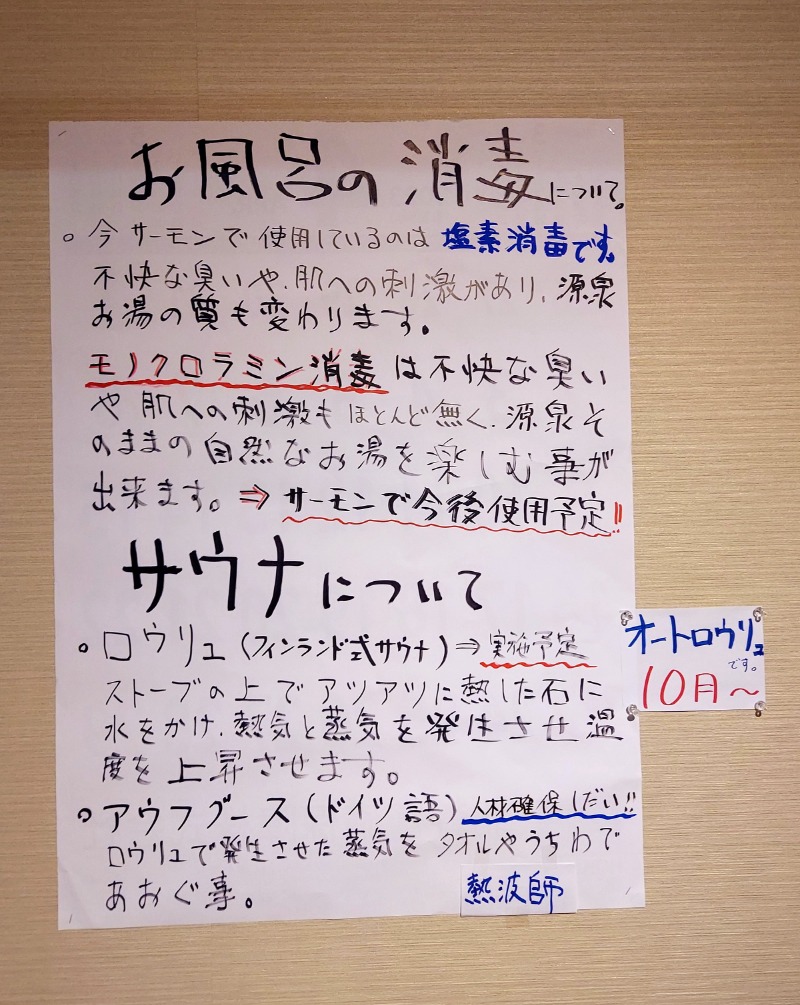 お風呂の消毒について。
○ 今サーモンで使用しているのは塩素消毒です。
不快な臭いや、肌への刺激があり、源泉
お湯の質も変わります。
モノクロラミン消毒は不快な臭い
や肌への刺激もほとんど無く、源泉そ
のままの自然なお湯を楽しむ事が
出来ます。⇒ サーモンで今後使用予定!!
サウナについて
○ ロウリュ(フィンランド式サウナ)⇒実施予定
オートロウリュ
です。
10月〜
ストーブの上でアツアツに熱した石に
水をかけ、熱気と蒸気を発生させ温
度を上昇させます。
○ アウフグース(ドイツ語)人材確保しだい!!
ロウリュで発生させた蒸気をタオルやうちわで
あおぐ事。
熱波師